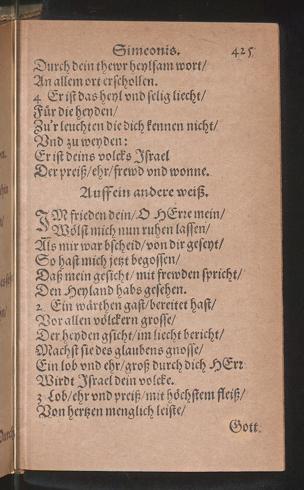 Simeonis. 425
Durch dein thewr heylsam wort/
An allem ort erschollen.
4 Er ist das heyl vnd selig liecht/
Für die heyden/
Zu'r leuchten die dich kennen nicht/
Vnd zu weyden:
Er ist deins volcks Israel
Der preiß/ehr/frewd vnd wonne.
Auff ein andere weiß.
IM frieden dein/O HErre mein/
Wölst mich nun ruhen lassen/
Als mir war bscheid/von dir geseyt/
So hast mich jetzt begossen/
Daß mein gesicht/mit frewden spricht/
Den Heyland habs gesehen.
2. Ein wärthen gast/bereitet hast/
Vor allen völckern grosse/
Der heyden gsicht/im liecht bericht/
Machst sie des glaubens gnosse/
Ein lob vnd ehr/groß durch dich HErr
Wirdt Israel dein volcke.
3 Lob/ehr vnd preiß/mit höchstem fleiß/
Von hertzen menglich leiste/
Gott